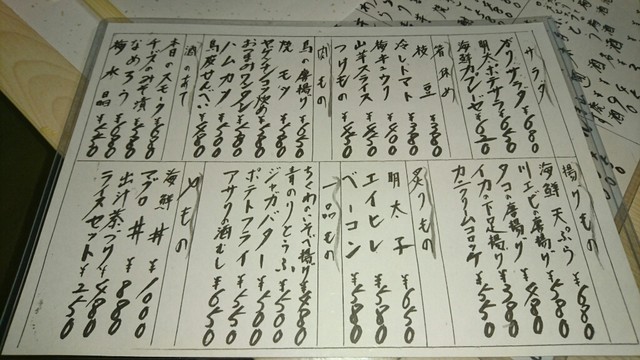 サラダ
グリサラダ ¥680
明太ポテサラ ¥650
海鮮カルレーゼ ¥620
箸休め
枝豆 ¥380
冷しトマト ¥380
梅キウリ ¥400
山芋スライス ¥450
つけもの ¥450
肉もの
鳥の唐揚げ ¥650
焼モツ ¥580
おまめのウインナー ¥580
ハムカツ ¥480
鳥皮せんべい ¥500
酒のあて
本日のスモーク ¥680
チーズのみそ漬 ¥580
なめろう ¥680
梅水晶 ¥550
揚げもの
海鮮天ぷら ¥680
川エビの唐揚げ ¥580
タコの唐揚げ ¥480
イカの下足揚げ ¥380
カニクリームコロッケ ¥550
炙りもの
明太子 ¥650
エイヒレ ¥550
ベーコン ¥580
一品もの
ちくわのいそべ揚げ ¥480
青のりとうふ ¥550
ジャガバター ¥500
ポテトフライ ¥550
アサリの酒むし ¥650
〆もの
海鮮丼 ¥1000
マグロ丼 ¥880
出汁茶づけ ¥480
ライスセット ¥250